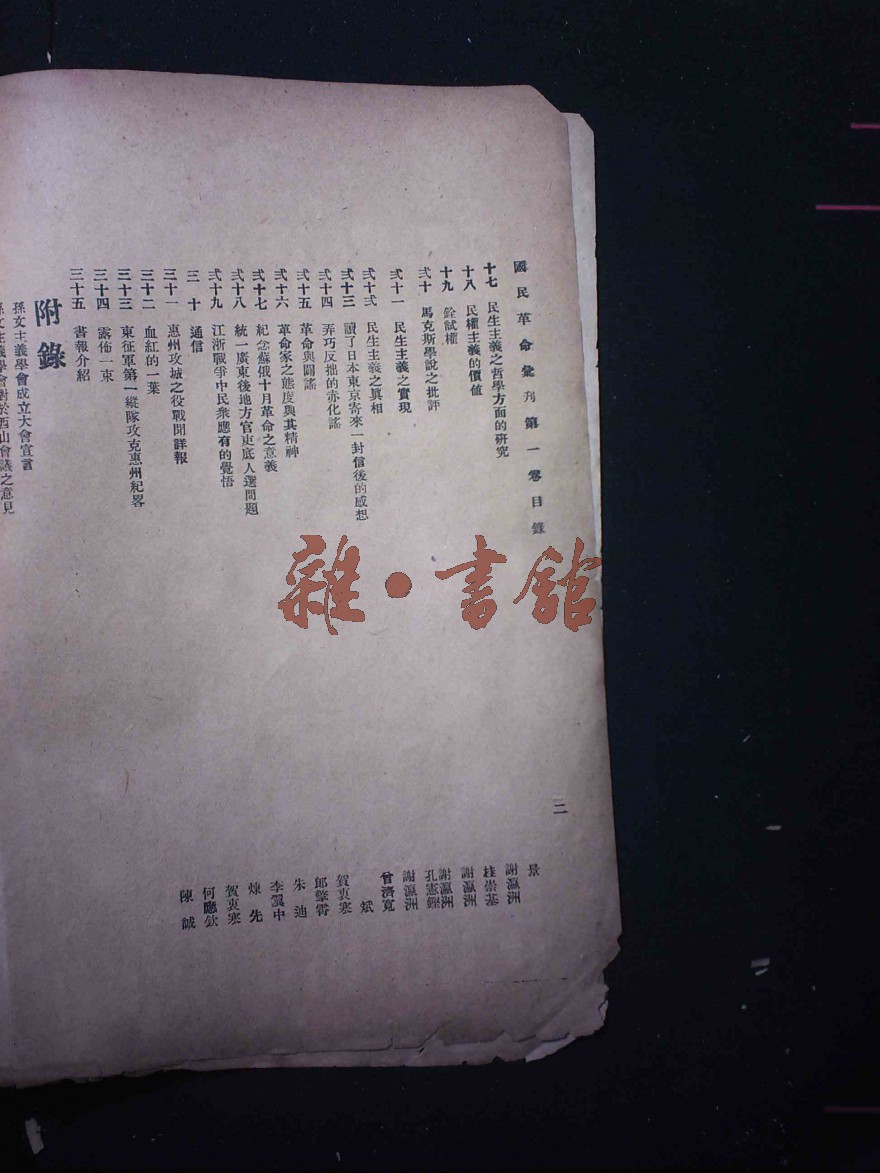 國民革命彙刊第一卷目錄
二
十七 民生主義之哲學方面的研究
十八 民權主義的價值
十九 銓試權
弍十 馬克斯學說之批評
弍十一 民生主義之實現
弍十弍 民生主義之眞相
弍十三 讀了日本東京寄來一封信後的感想
弍十四 弄巧反拙的赤化謠
弍十五 革命與闢謠
弍十六 革命家之態度與其精神
弍十七 紀念蘇俄十月革命之意義
弍十八 統一廣東後地方官吏底人選問題
弍十九 江浙戰爭中民衆應有的覺悟
三十 通信
三十一 惠州攻城之役戰閗詳報
三十二 血紅的一葉
三十三 東征軍第一縱隊攻克惠州紀畧
三十四 露佈一束
三十五 書報介紹
附錄
孫文主義學會成立大會宣言
孫文主義學會對於西山會議之意見
景
謝瀛洲
桂崇基
謝瀛洲
謝瀛洲
孔憲鏗
謝瀛洲
曾濟寬
斌
賀衷寒
郎擎霄
朱迪
李翼中
煉先
賀衷寒
何應欽
陳誠
雜·書館